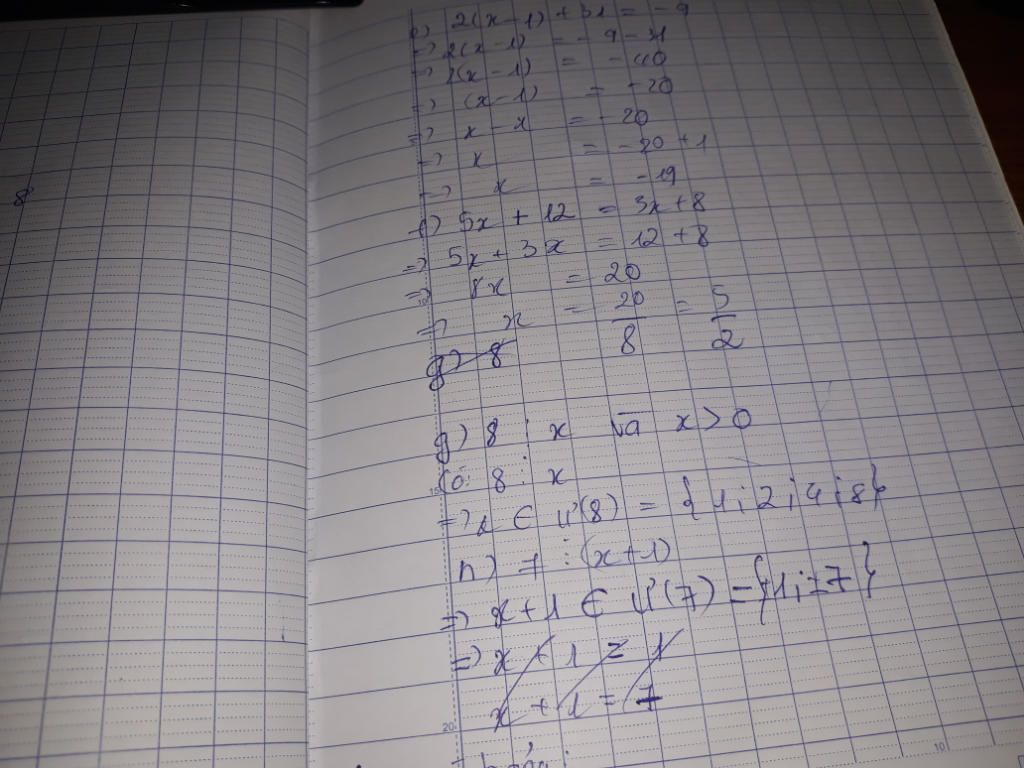 e) 2(x-1) + 31 = -9
=> 2(x-1) = -9-31
=> 2(x-1) = -40
=> (x-1) = -20
=> x - x = -20
=> x = -20+1
=> x = -19
f) 5x + 12 = 3x+8
=> 5x + 3x = 12+8
=> 8x = 20
=> x = 20/8 = 5/2
g) 8
g) 8 ⋮ x và x > 0
Có: 8 ⋮ x
=> x ∈ Ư(8) = {1;2;4;8}
h) 7 ⋮ (x+1)
=> x+1 ∈ Ư(7) = {±1;±7}
=> x + 1 = 1
x + 1 = 7
8